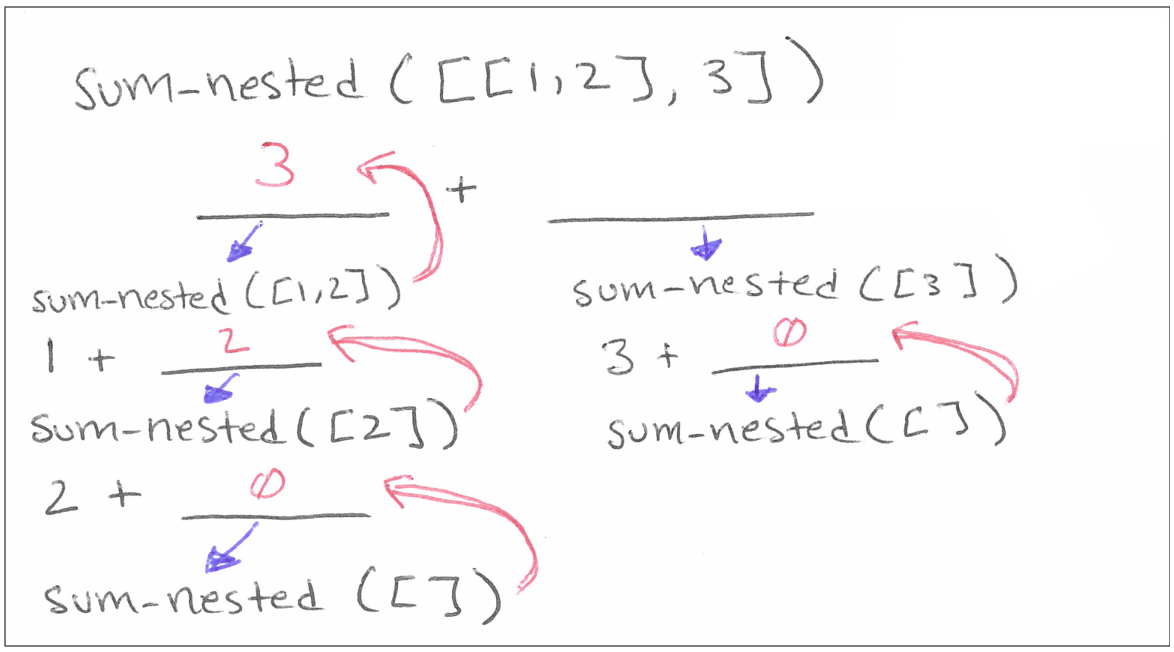 sum-nested ([[1,2], 3])
3 +
sum-nested ([1,2]) sum-nested ([3])
1 + 2 3 + 0
sum-nested ([2]) sum-nested ([])
2 + 0
sum-nested ([])